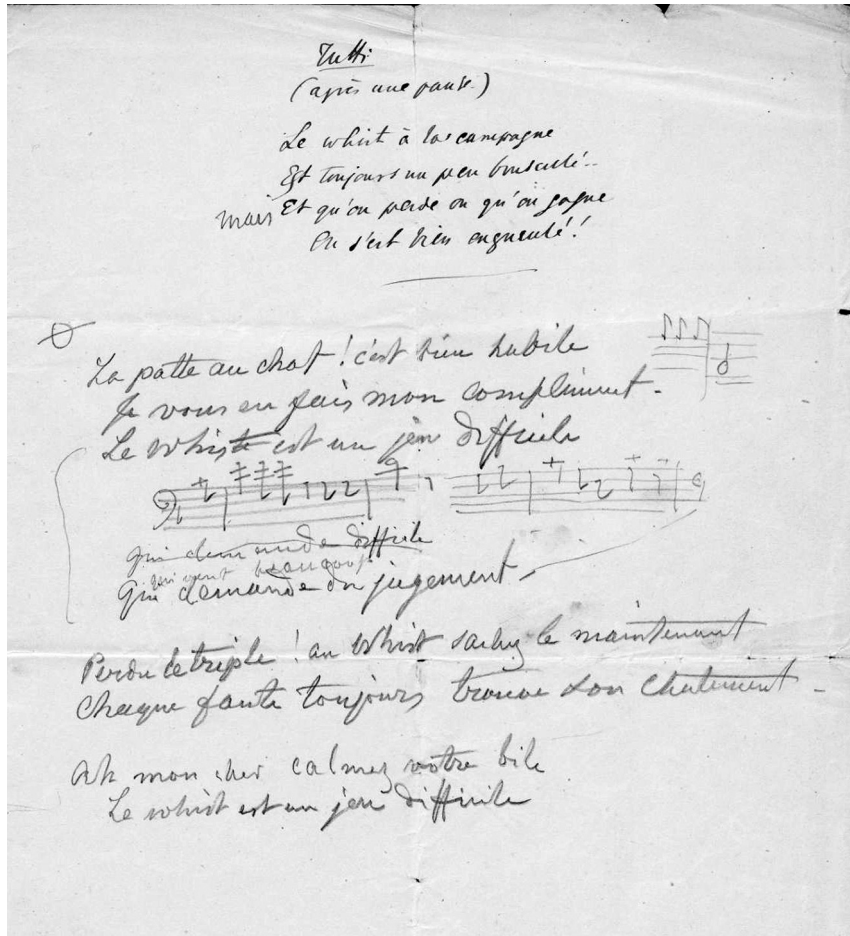 Tutti
(après une pause.)
Le whist à la campagne
Est toujours un peu bousculé..
mais Et qu'on perde ou qu'on gagne
On s'est bien engueulé!
La patte au chat! c'est bien habile
Je vous en fais mon compliment.
Le whist est un jeu difficile
qui demande difficile
qui veut beaucoup
Qui demande du jugement
Perdu le triple! au whist sachez le maintenant
Chaque faute toujours trouve son chatiment
Ah mon cher calmez votre bile
Le whist est un jeu difficile